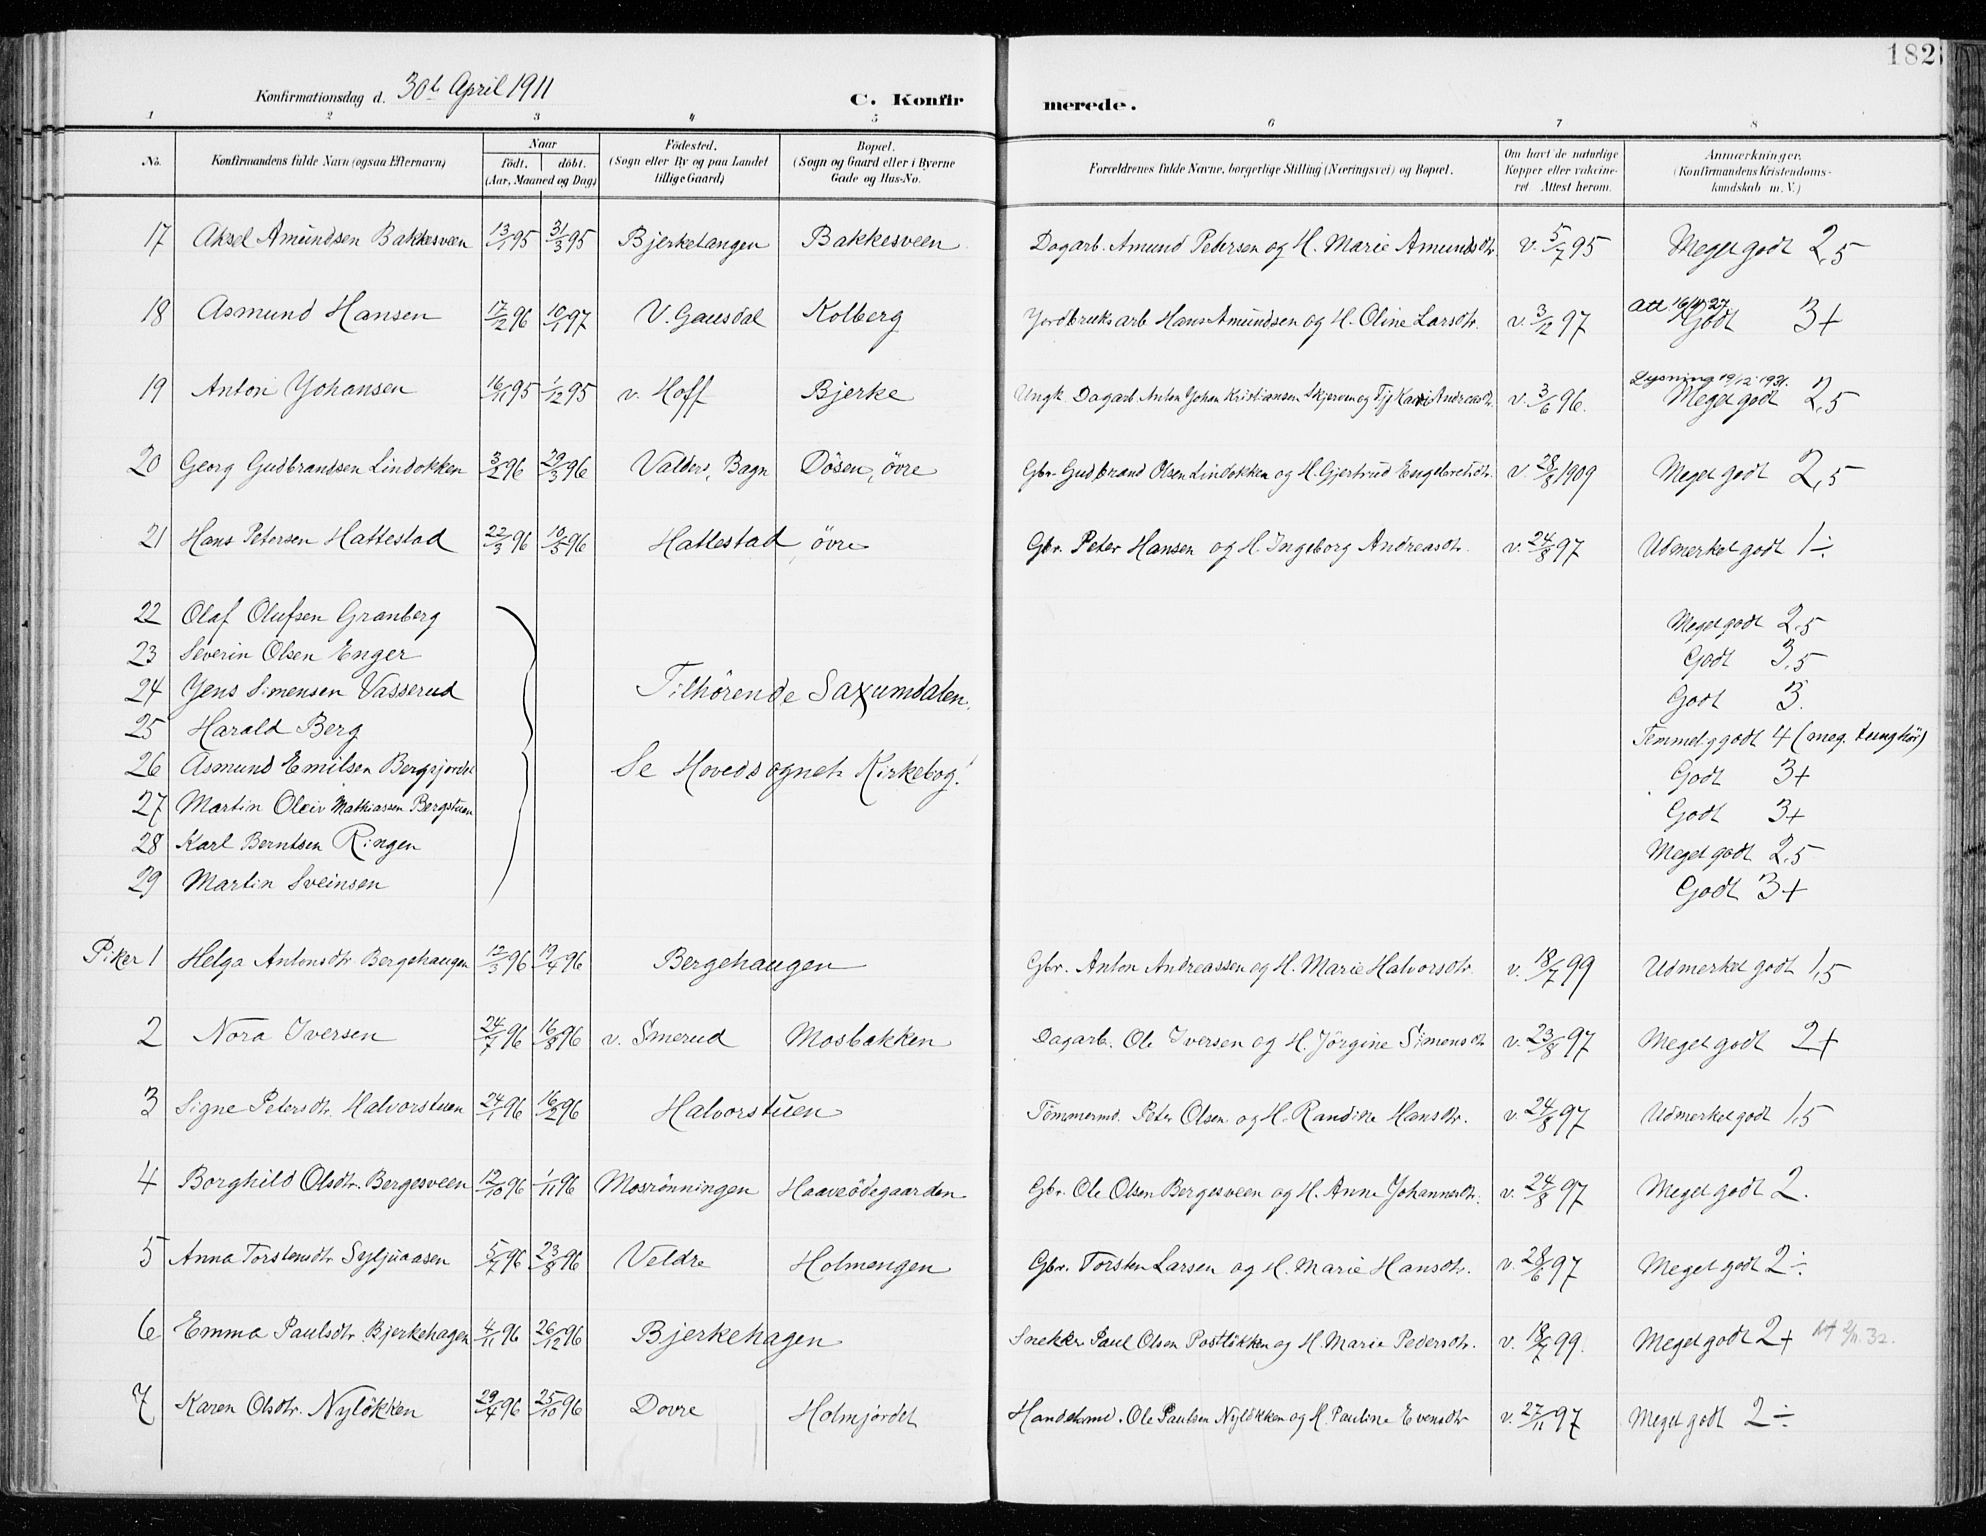 182
Konfirmationsdag d. 30te April 1911
C. Konfirmerede.
1 2 3 4 5 6 7 8
No. Konfirmandens fulde Navn (ogsaa Efternavn) Naar født. døbt. (Aar, Maaned og Dag) Fødested. (Sogn eller By og paa Landet tillige Gaard) Bopæl. (Sogn og Gaard eller i Byerne Gade og Hus-No. Forældrenes fulde Navne, borgerlige Stilling (Næringsvei) og Bopæl. Om havt de naturlige Kopper eller vakcineret Attest herom. Anmærkninger. (Konfirmandens Kristendomskundskab m. V.)
17 Aksel Amundsen Bakkesveen 13/1 95 31/3 95 Bjerkelangen Bakkesveen Dagarb. Amund Petersen og H. Marie Amundsdtr. v. 5/7 95 Meget godt 2,5
18 Asmund Hansen 17/12 96 10/1 97 V. Gausdal Kolberg Jordbruksarb Hans Amundsen og H. Oline Larsdtr. v. 3/12 97 Att. 16/4 27 Godt 3+
19 Anton Johansen 16/11 95 1/12 95 v. Hoff Bjerke Ungk. Dagarb. Anton Johan Kristiansen Skjerven og Pij Kari Andreasdtr. v. 3/6 96. Lysning 19/12 1931. Meget godt 2,5
20 Georg Gudbrandsen Lindökken 3/2 96 29/3 96 Valders, Bagn Dösen, övre Gbr. Gudbrand Olsen Lindökken og H. Gjertrud Engebretsdtr. v. 28/8 1909 Meget godt 2,5
21 Hans Petersen Hattestad 22/3 96 10/5 96 Hattestad, övre Gbr. Peter Hansen og H. Ingeborg Andreasdtr. v. 24/8 97 Udmerket godt 1÷
22 Olaf Olufsen Granberg Meget godt 2,5
23 Severin Olsen Enger Godt 3,5
24 Jens Simensen Vasserud Tilhörende Saxumdalen. Godt 3.
25 Harald Berg Temmel. godt 4 (meg. tunghör)
26 Asmund Emilsen Bergsjordet Se Hovedsognets Kirkebog! Godt 3+
27 Martin Oleiv Mathiassen Bergstuen Godt 3+
28 Karl Berntsen Ringen Meget godt 2,5
29 Martin Sveinsen Godt 3+
Piker 1 Helga Antonsdtr. Bergehaugen 12/3 96 19/4 96 Bergehaugen Gbr. Anton Andreassen og H. Marie Halvorsdtr. v. 18/7 99 Udmerket godt 1,5
2 Nora Iversen 24/7 96 16/8 96 v. Smerud Mosbakken Dagarb. Ole Iversen og H. Jörgine Simensdtr v. 23/8 97 Meget godt 2+
3 Signe Petersdtr. Halvorstuen 24/1 96 16/2 96 Halvorstuen Tömmermd. Peter Olsen og H. Randine Hansdtr. v. 24/8 97 Udmerket godt 1,5
4 Borghild Olsdtr. Bergesveen 12/10 96 1/11 96 Mosrönningen Haaveödegaarden Gbr. Ole Olsen Bergesveen og H. Anne Johannesdtr. v. 24/8 97 Meget godt 2.
5 Anna Torstensdtr. Syljuaasen 5/7 96 23/8 96 Veldre Holmengen Gbr. Torsten Larsen og H. Marie Hansdtr. v. 28/6 97 Meget godt 2÷
6 Emma Paulsdtr. Bjerkehagen 4/11 96 26/12 96 Bjerkehagen Snekker Paul Olsen Postlökken og H. Marie Pedersdtr. v. 18/7 99. Meget godt 2+ 2/11. 32.
7 Karen Olsdtr. Nylökken 29/4 96 25/10 96 Dovre Holmjordet Handelsmd. Ole Paulsen Nylökken og H. Pauline Evensdtr v. 27/11 97 Meget godt 2÷